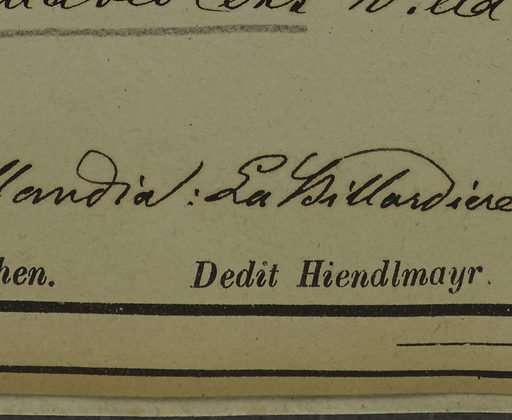 Willd
llandia: La Billardiere
hen. Dedit Hiendlmayr.